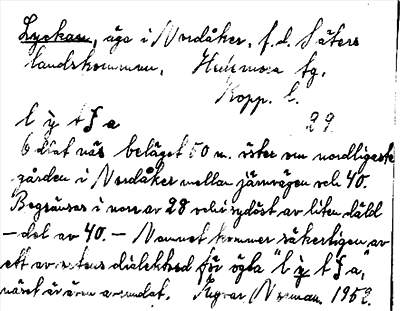 Lyckan, äga i Nordåker, f.d. Säters
landskommun, Hedemora tg.
Kopp. l.
29.
beläget 50 m. öster om nordligaste
gården i Nordåker mellan järnvägen och 40.
Begränsas i norr av 28 och i sydöst av liten däld
– del av 40. – Namnet kommer säkerligen av
ett av ortens dialektord för ögla "
näset är även användat. Norman 1952.